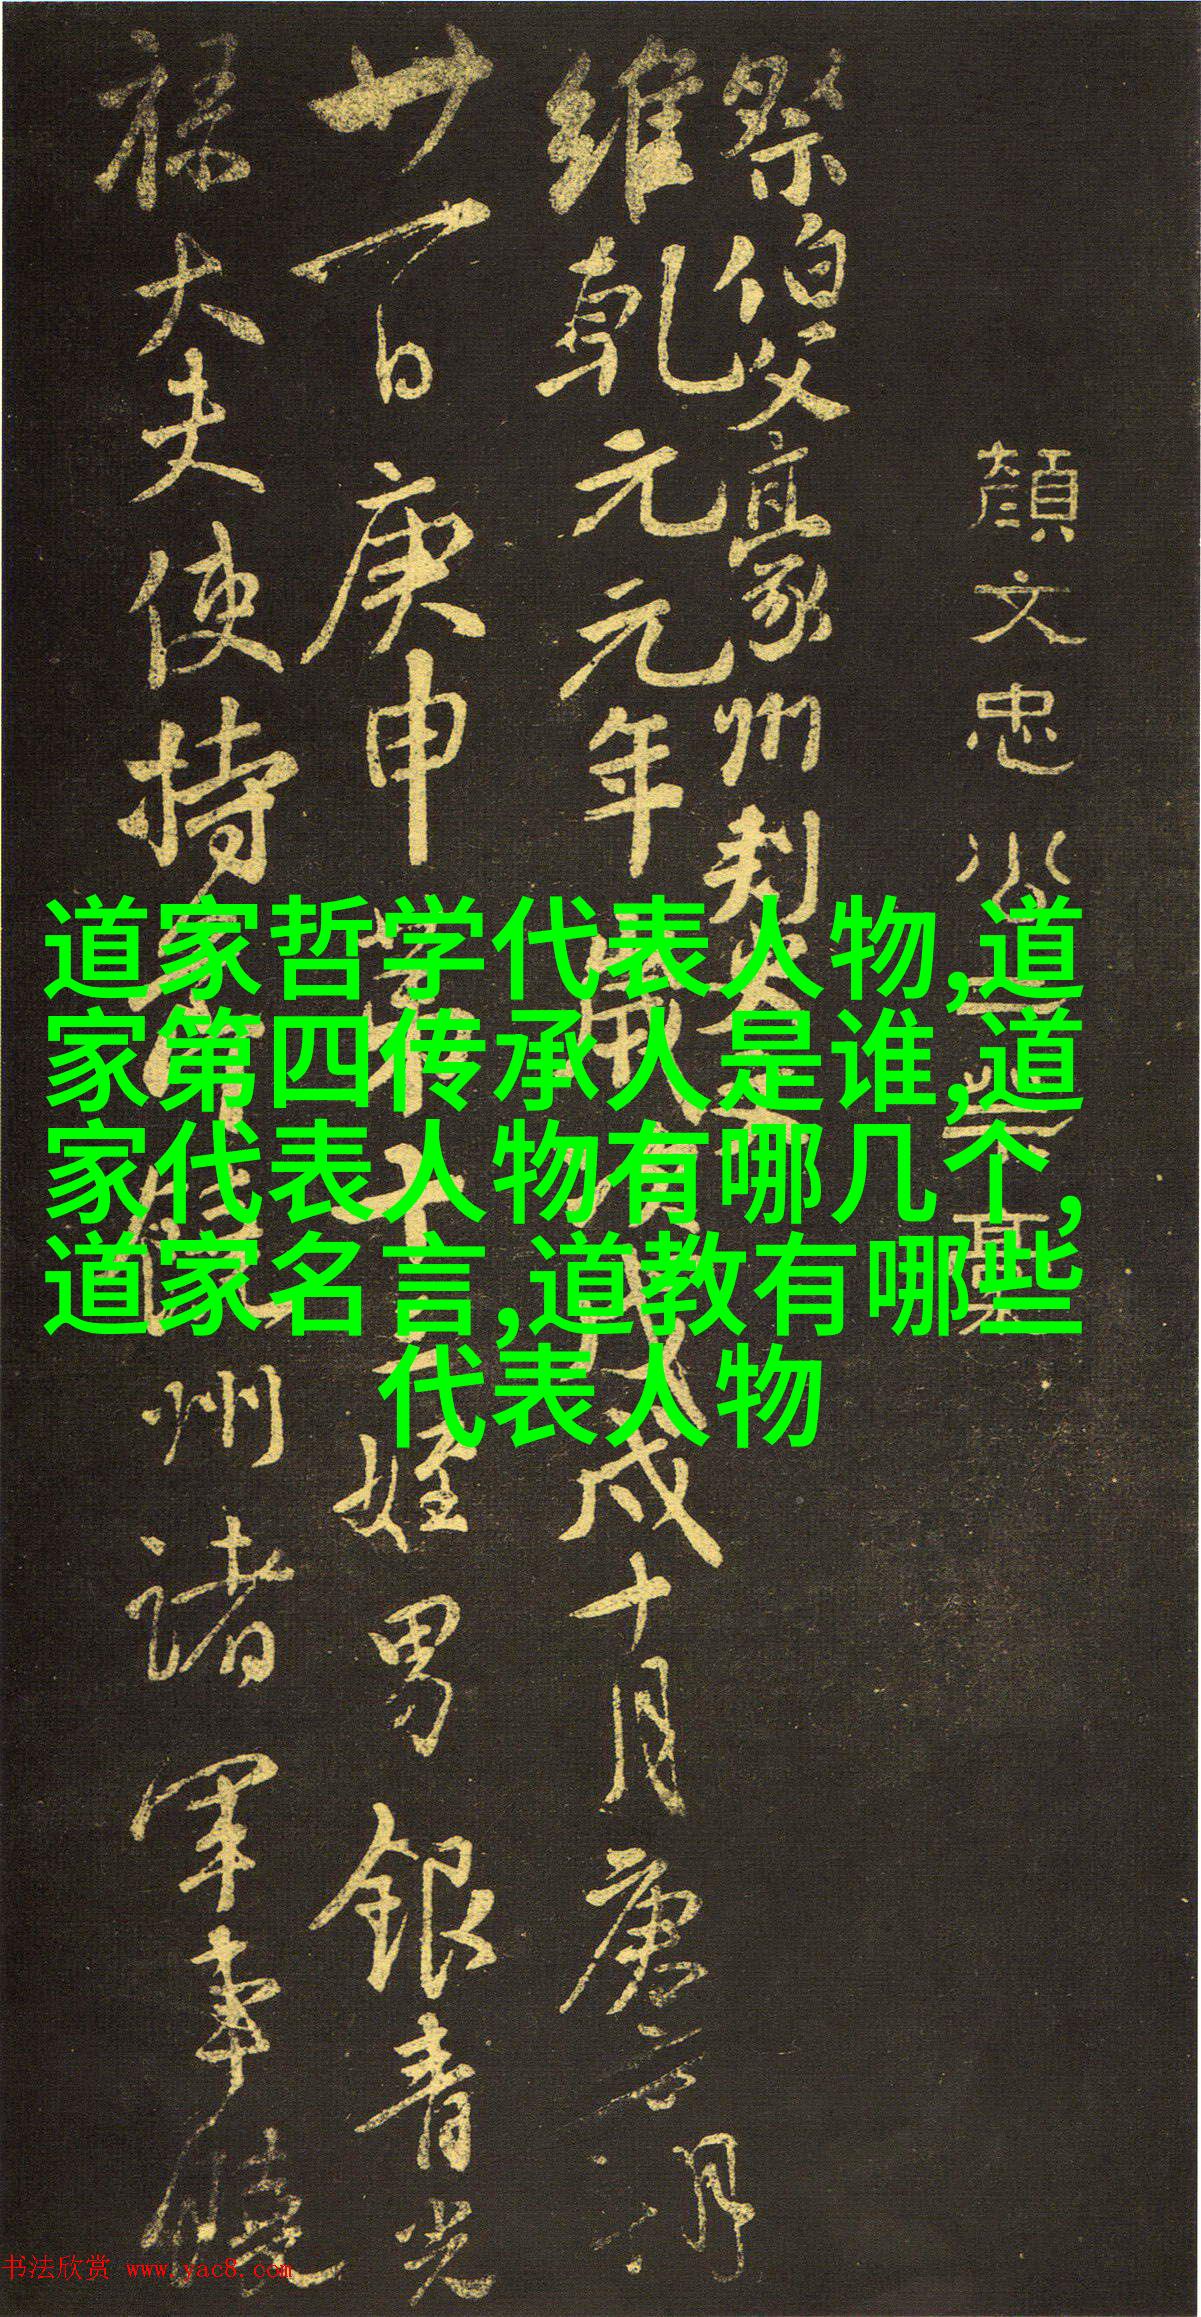 顏文忠公三祭稾
祭伯父豪州刺史文
維乾元元年歲次戊戌十月庚寅朔
廿一日庚申第十三姪男銀青光
祿大夫使持節饒州諸軍事饒
道家哲学代表人物,道
家第四传承人是谁,道
家代表人物有哪几个,
道家名言,道教有哪些
代表人物
书法欣赏 www.yac8.com